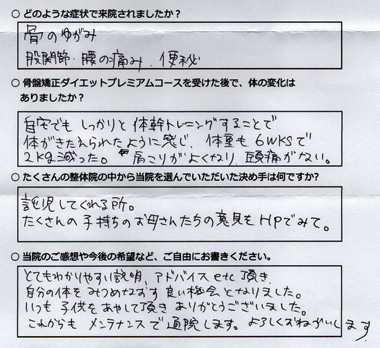 ○ どのような症状で来院されましたか？
骨のゆがみ
股関節・腰の痛み、便秘
○ 骨盤矯正ダイエットプレミアムコースを受けた後で、体の変化は
ありましたか？
自宅でもしっかりと体幹トレーニングすることで
体がきたえられたように感じ、体重も6WKSで
2kg減った。肩こりがよくなり頭痛がない。
○ たくさんの整体院の中から当院を選んでいただいた決め手は何ですか？
託児してくれる所。
たくさんの子持ちのお母さんたちの意見をHPでみて。
○ 当院のご感想や今後の希望など、ご自由にお書きください。
とてもわかりやすい説明、アドバイスetc頂き
自分の体をみつめなおす良い機会となりました。
いつも子供をあやして頂きありがとうございました。
これからもメンテナンスで通院します。よろしくおねがいします